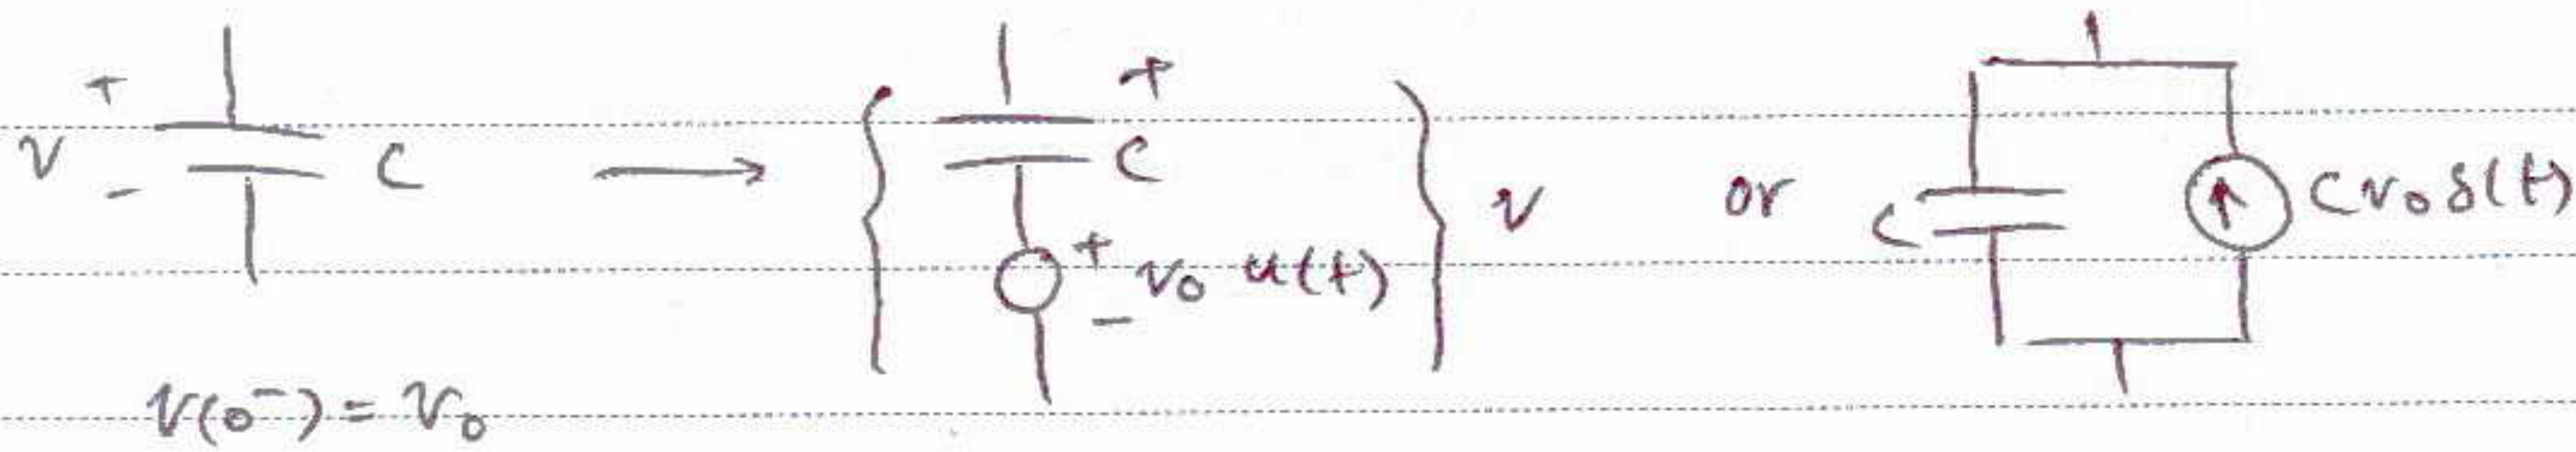 +
v
-
C
+
C
+
v₀ u(t)
-
v
or
C
C v₀ δ(t)
v(0⁻) = v₀